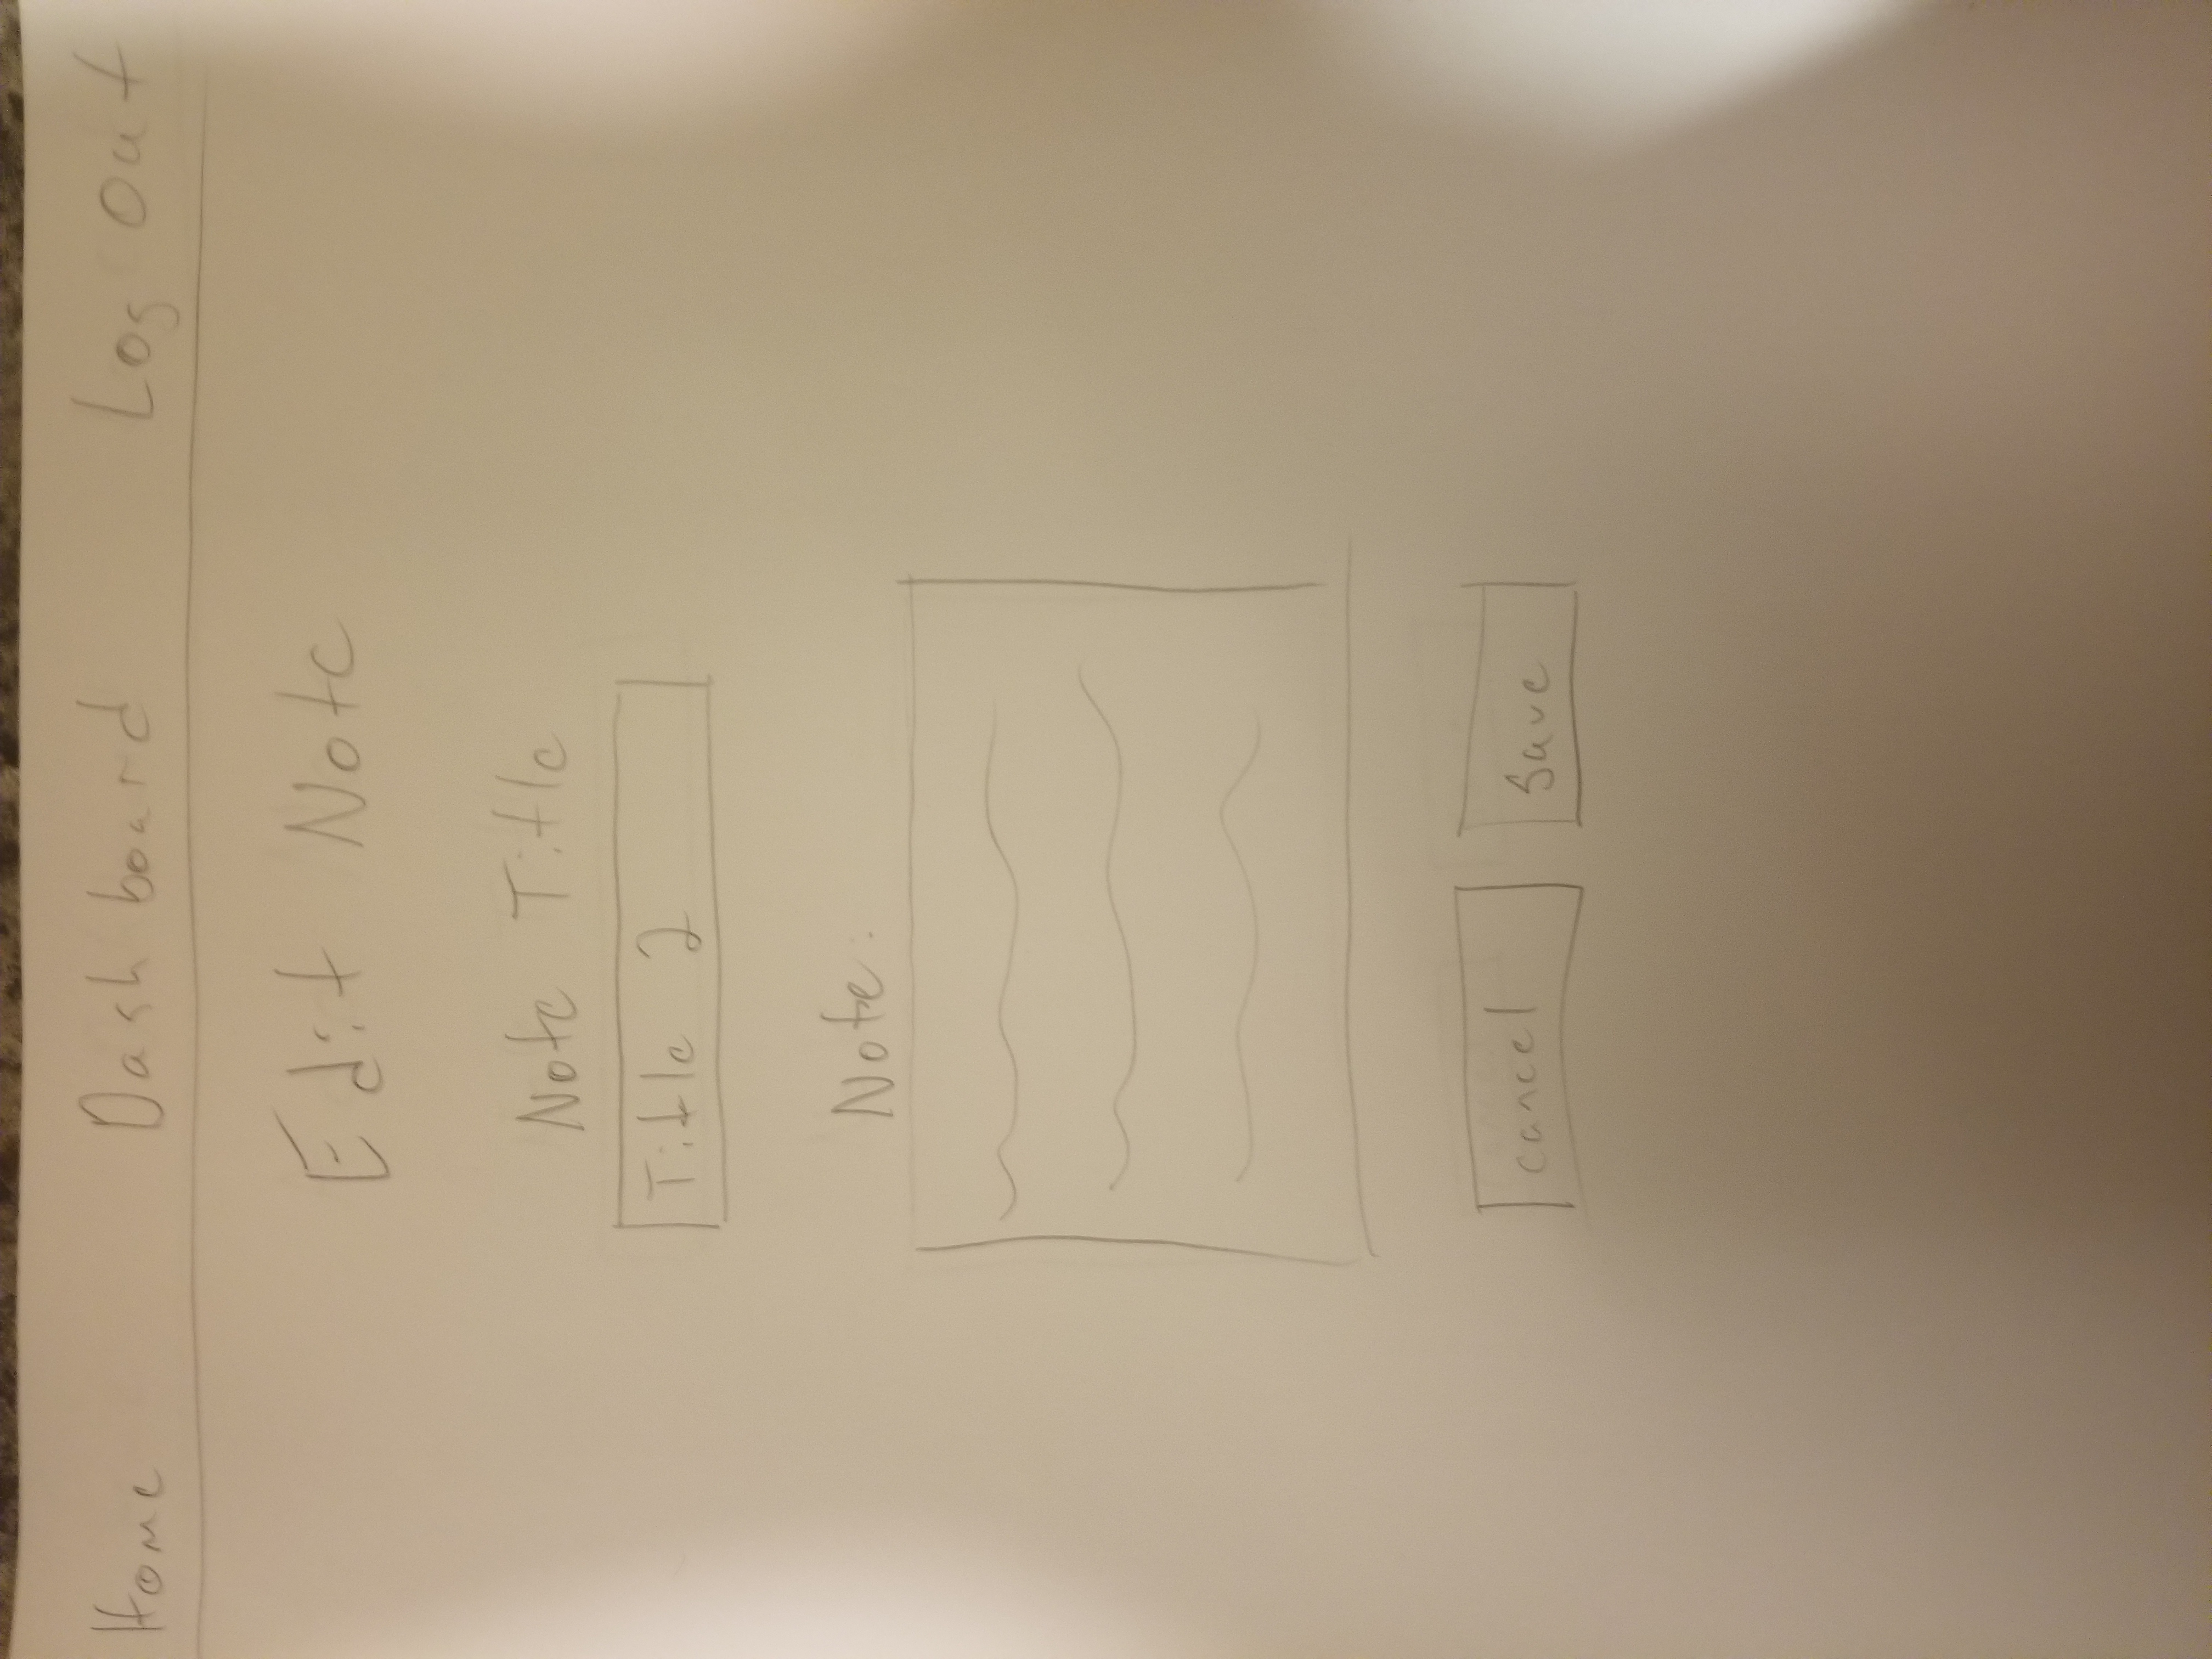 Home Dashboard Log Out
Edit Note
Note Title
Title 2
Note:
cancel save